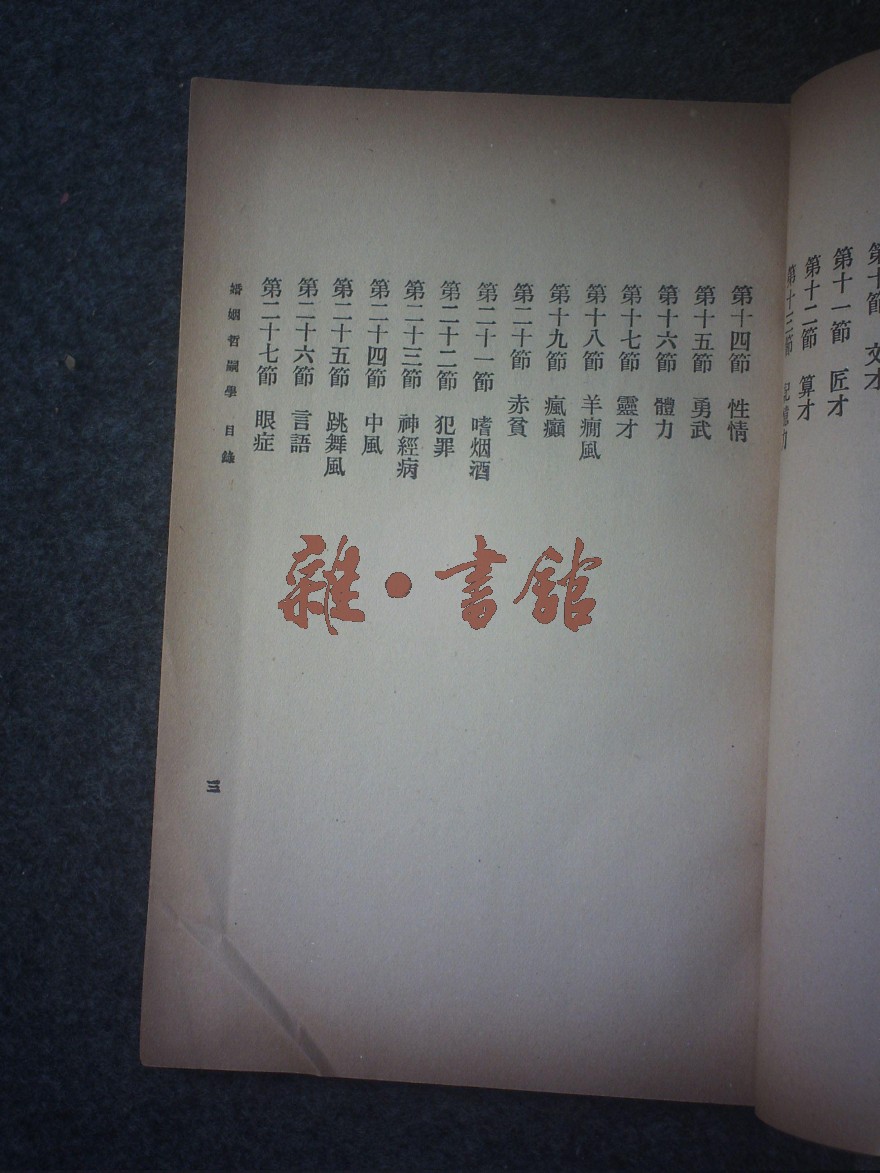 第十節 文才
第十一節 匠才
第十二節 算才
第十三節 記憶力
第十四節 性情
第十五節 勇武
第十六節 體力
第十七節 靈才
第十八節 羊癇風
第十九節 瘋癲
第二十節 赤貧
第二十一節 嗜烟酒
第二十二節 犯罪
第二十三節 神經病
第二十四節 中風
第二十五節 跳舞風
第二十六節 言語
第二十七節 眼症
婚姻哲嗣學 目錄
三
雜·書館